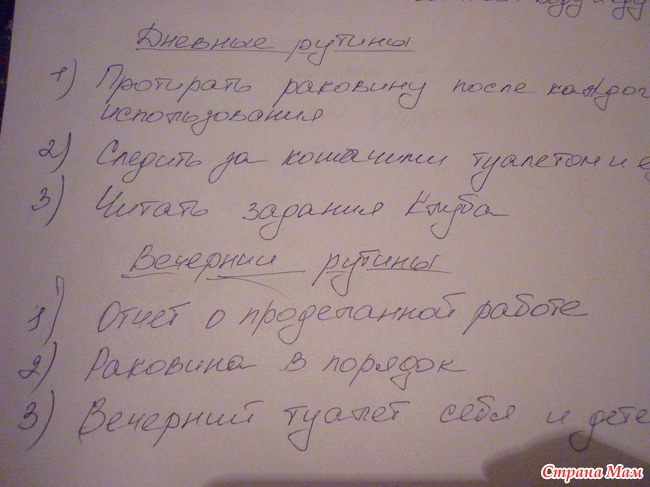 Дневные рутины
1) Протирать раковину после каждог
использования
2) Следить за кошачими туалетом и е
3) Читать задания Клуба
Вечернии рутины
1) Отчет о проделанной работе
2) Раковина в порядок
3) Вечерний туалет себя и дете
Страна Мам